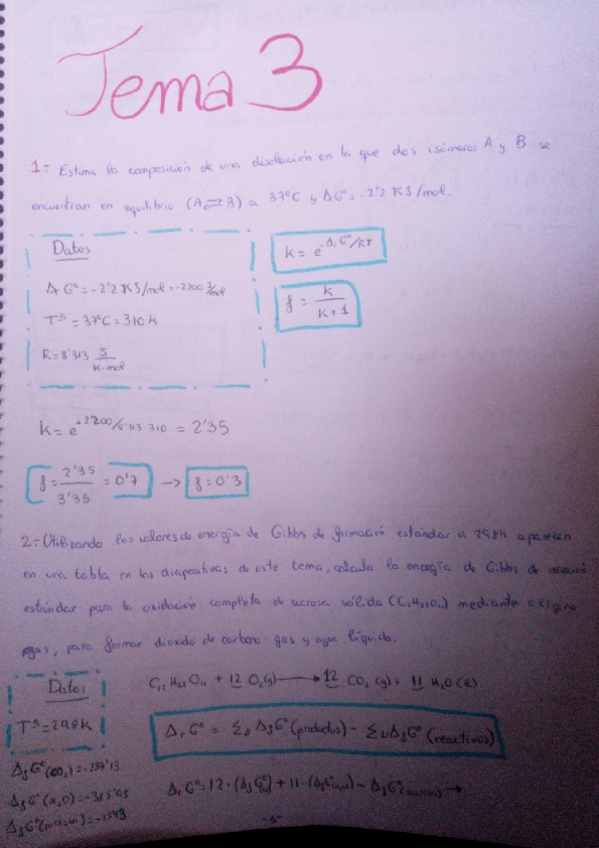 Tema 3
1= Estima la composición de una disolución en la que dos isómeros A y B se
encuentran en equilibrio (A⇌B) a 37ºC y ΔGº=-2'2 KJ/mol.
Datos
ΔGº=-2'2 KJ/mol=-2200 J/mol
Tª=37ºC=310K
R=8'313 J/K·mol
k= e^-ΔrGº/RT
f= k/k+1
k= e^+2200/8'313·310 = 2'35
f= 2'35/3'35 = 0'7 → f=0'3
2= Utilizando los valores de energía de Gibbs de formación estándar a 298K aparecen
en una tabla en las diapositivas de este tema, calcula la energía de Gibbs de reacción
estándar para la oxidación completa de sacrosa sólida (C12H22O11) mediante oxígeno
gas, para formar dioxido de carbono gas y agua líquida.
Datos
Tª=298K
C12H22O11 + 12 O2(g) → 12 CO2(g) + 11 H2O(l)
ΔrGº = ΣνΔfGº(productos) - ΣνΔfGº(reactivos)
ΔfGº(CO2)=-237'13
ΔfGº(H2O)=
ΔfGº =-1543
ΔrGº=12·(ΔfGº) + 11·(ΔfGº) - ΔfGº →
-1-